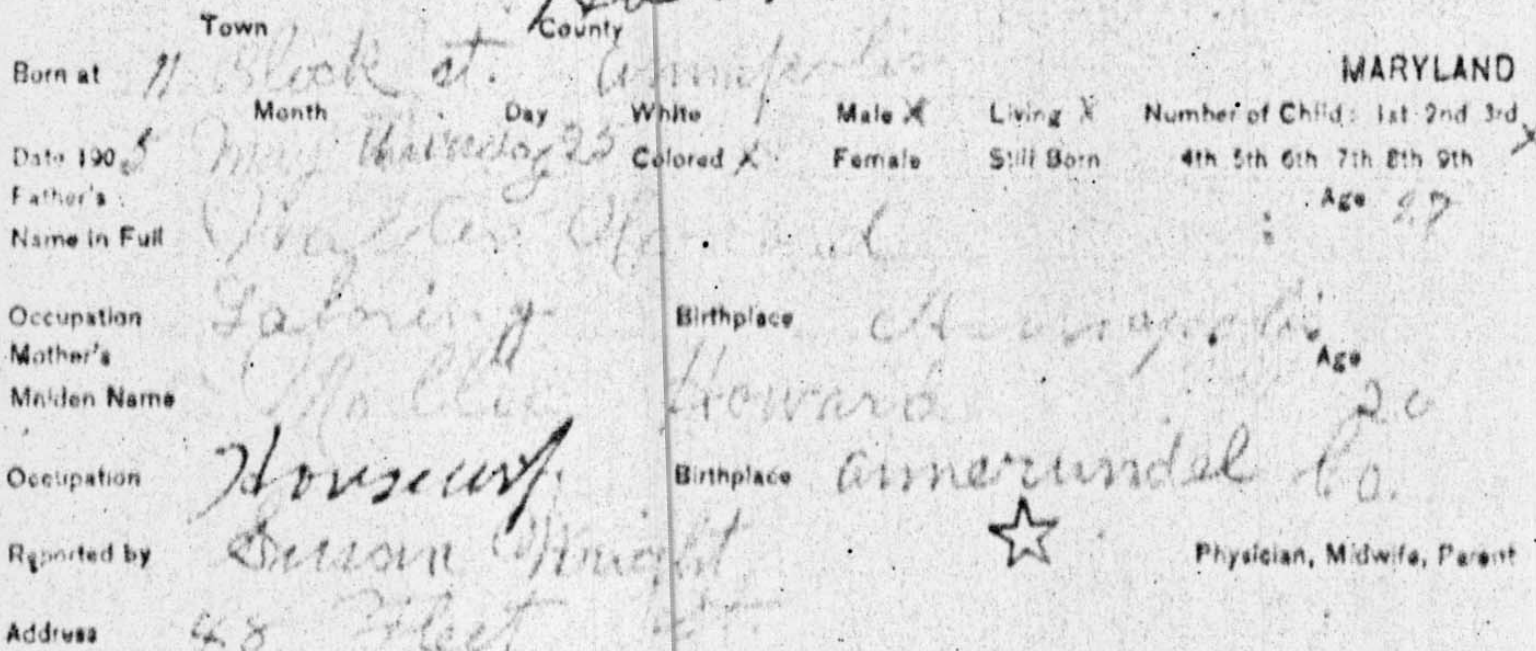 Town County
Born at 11 Block st. Annapolis MARYLAND
Month Day White Male X Living X Number of Child: 1st 2nd 3rd
Date 1905 May Thursday 25 Colored X Female Still Born 4th 5th 6th 7th 8th 9th X
Father's Age 27
Name in Full
Occupation Laboring Birthplace Annapolis
Mother's Age
Maiden Name Mollie Howard 20
Occupation Housewif Birthplace annerundel Co.
Reported by Susan Wright Physician, Midwife, Parent
Address 48 Fleet st.